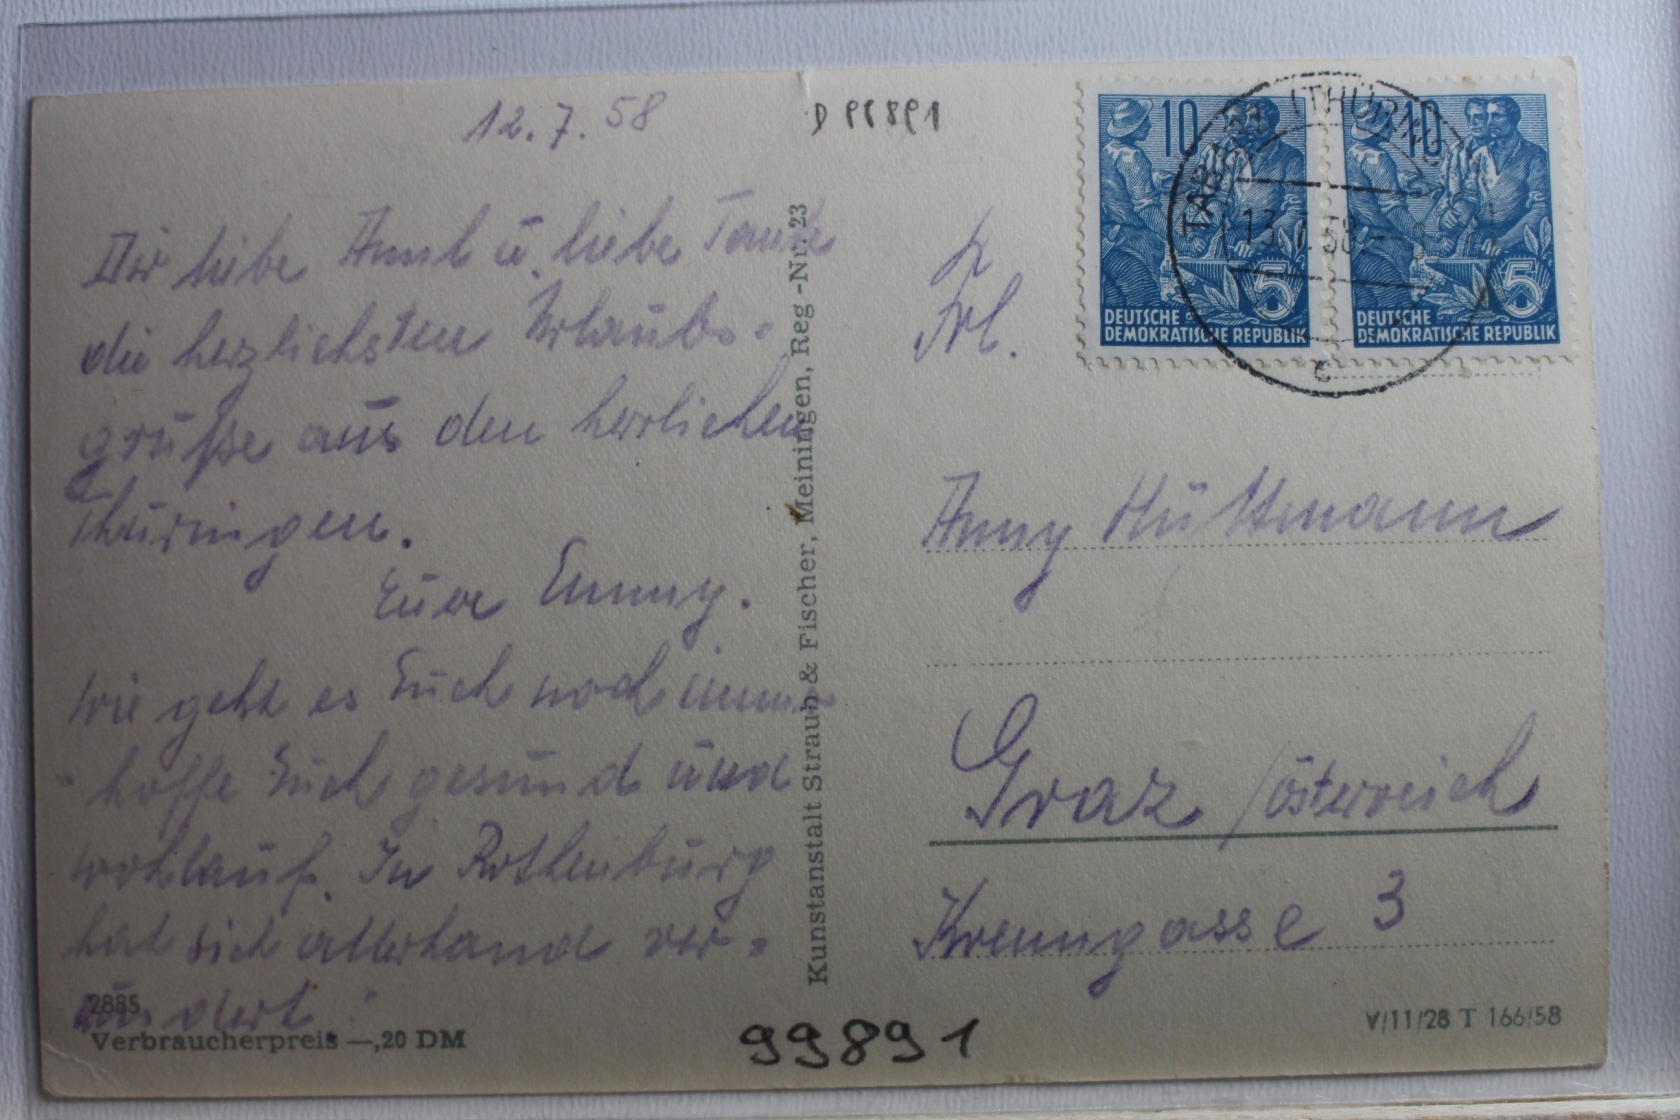 12.7.58
Dir liebe Annl u. liebe Tante
die herzlichsten Urlaubs=
grüße aus den herrlichen
Thüringen.
Eure Emmy.
Wie geht es Euch noch immer
- hoffe Euch gesund und
wohlauf. In Rothenburg
hat sich allerhand ver=
ändert!
2885
Verbraucherpreis —,20 DM
Kunstanstalt Straub & Fischer, Meiningen, Reg-Nr. 23
10
5
DEUTSCHE
DEMOKRATISCHE REPUBLIK
10
5
DEUTSCHE
DEMOKRATISCHE REPUBLIK
TABARZ (THÜRING
13.7.58
c
Frl.
Anny Hüttmann
Graz /Österreich
Krenngasse 3
99891
V/11/28 T 166/58